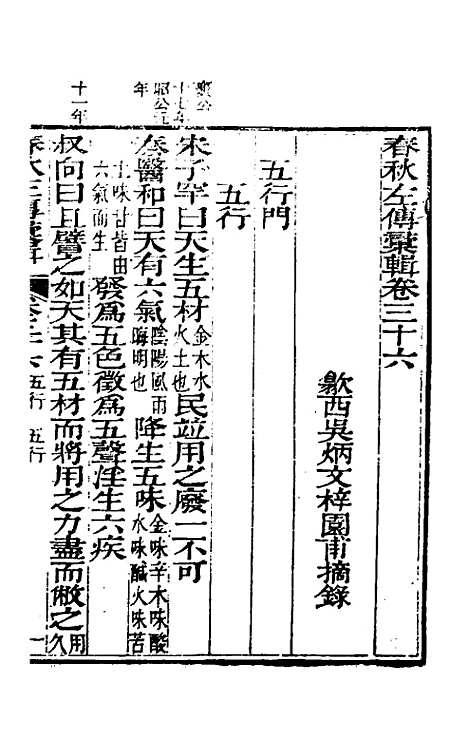 春秋左傳彙輯卷三十六
歙西吳炳文梓園甫摘錄
五行門
五行
襄公
十七年
宋子罕曰天生五材金木水火土也民竝用之廢一不可
昭公元
年
秦醫和曰天有六氣陰陽風雨晦明也降生五味金味辛木味酸水味鹹火味苦
土味甘皆由六氣而生發爲五色徵爲五聲淫生六疾
十一年
叔向曰且譬之如天其有五材而將用之力盡而敝之用久
春秋左傳彙輯 卷三十六 五行 五行 一